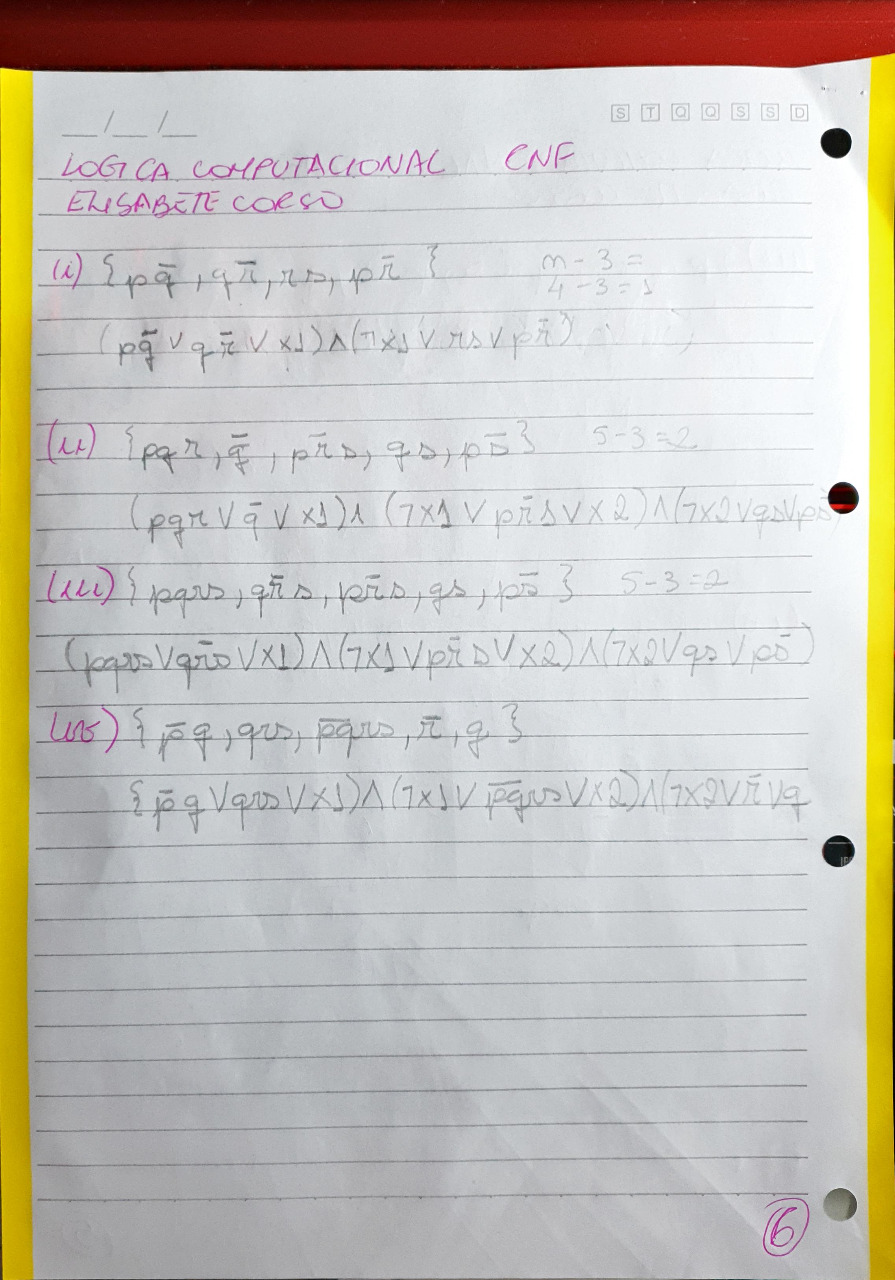 __/__/__
S T Q Q S S D
LOGICA COMPUTACIONAL CNF
ELISABETE CORSO
(i) {pq̄, qr̄, rs, pr̄} n-3=
4-3=1
(pq̄ ∨ qr̄ ∨ x1)∧(¬x1 ∨ rs ∨ pr̄)
(ii) {pqr, q̄, pr̄s, qs, ps̄} 5-3=2
(pqr ∨ q̄ ∨ x1)∧ (¬x1 ∨ pr̄s ∨ x2)∧(¬x2 ∨ qs ∨ ps̄)
(iii) {pqrs, qr̄s, pr̄s, qs, ps̄} 5-3=2
(pqrs ∨ qr̄s ∨ x1)∧(¬x1 ∨ pr̄s ∨ x2)∧(¬x2 ∨ qs ∨ ps̄)
(iv) {p̄q, qrs, p̄q̄rs, r̄, q}
{p̄q ∨ qrs ∨ x1)∧(¬x1 ∨ p̄q̄rs ∨ x2)∧(¬x2 ∨ r̄ ∨ q
6